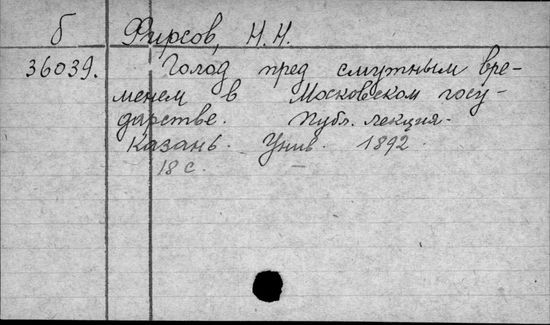 б Фирсов, Н.Н.
36039. Голод пред смутным вре-
менем в Московском госу-
дарстве. Публ. лекция.
Казань. Унив. 1892.
18 с. –